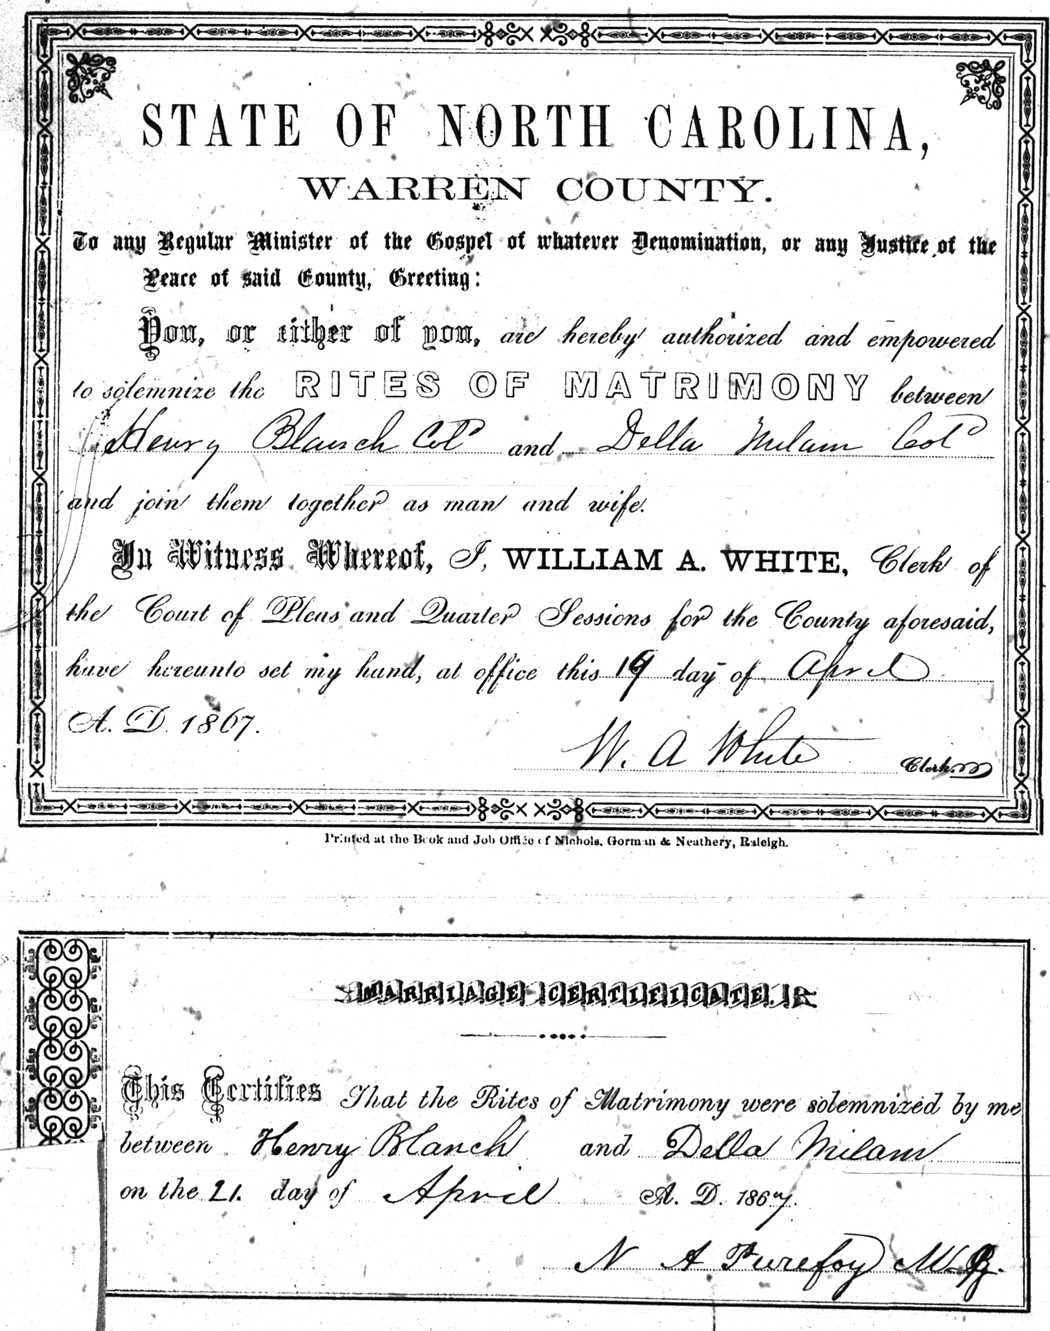 STATE OF NORTH CAROLINA,
WARREN COUNTY.
To any Regular Minister of the Gospel of whatever Denomination, or any Justice of the
Peace of said County, Greeting:
You, or either of you, are hereby authorized and empowered
to solemnize the RITES OF MATRIMONY between
Henry Blanch Cold and Della Milam Cold
and join them together as man and wife.
In Witness Whereof, I, WILLIAM A. WHITE, Clerk of
the Court of Pleas and Quarter Sessions for the County aforesaid,
have hereunto set my hand, at office this 19 day of April
A. D. 1867.
W. A White Clerk
Printed at the Book and Job Office of Nichols, Gorman & Neathery, Raleigh.
MARRIAGE CERTIFICATE.
This Certifies That the Rites of Matrimony were solemnized by me
between Henry Blanch and Della Milam
on the 21. day of April A. D. 1867.
N A Purefoy M. G.